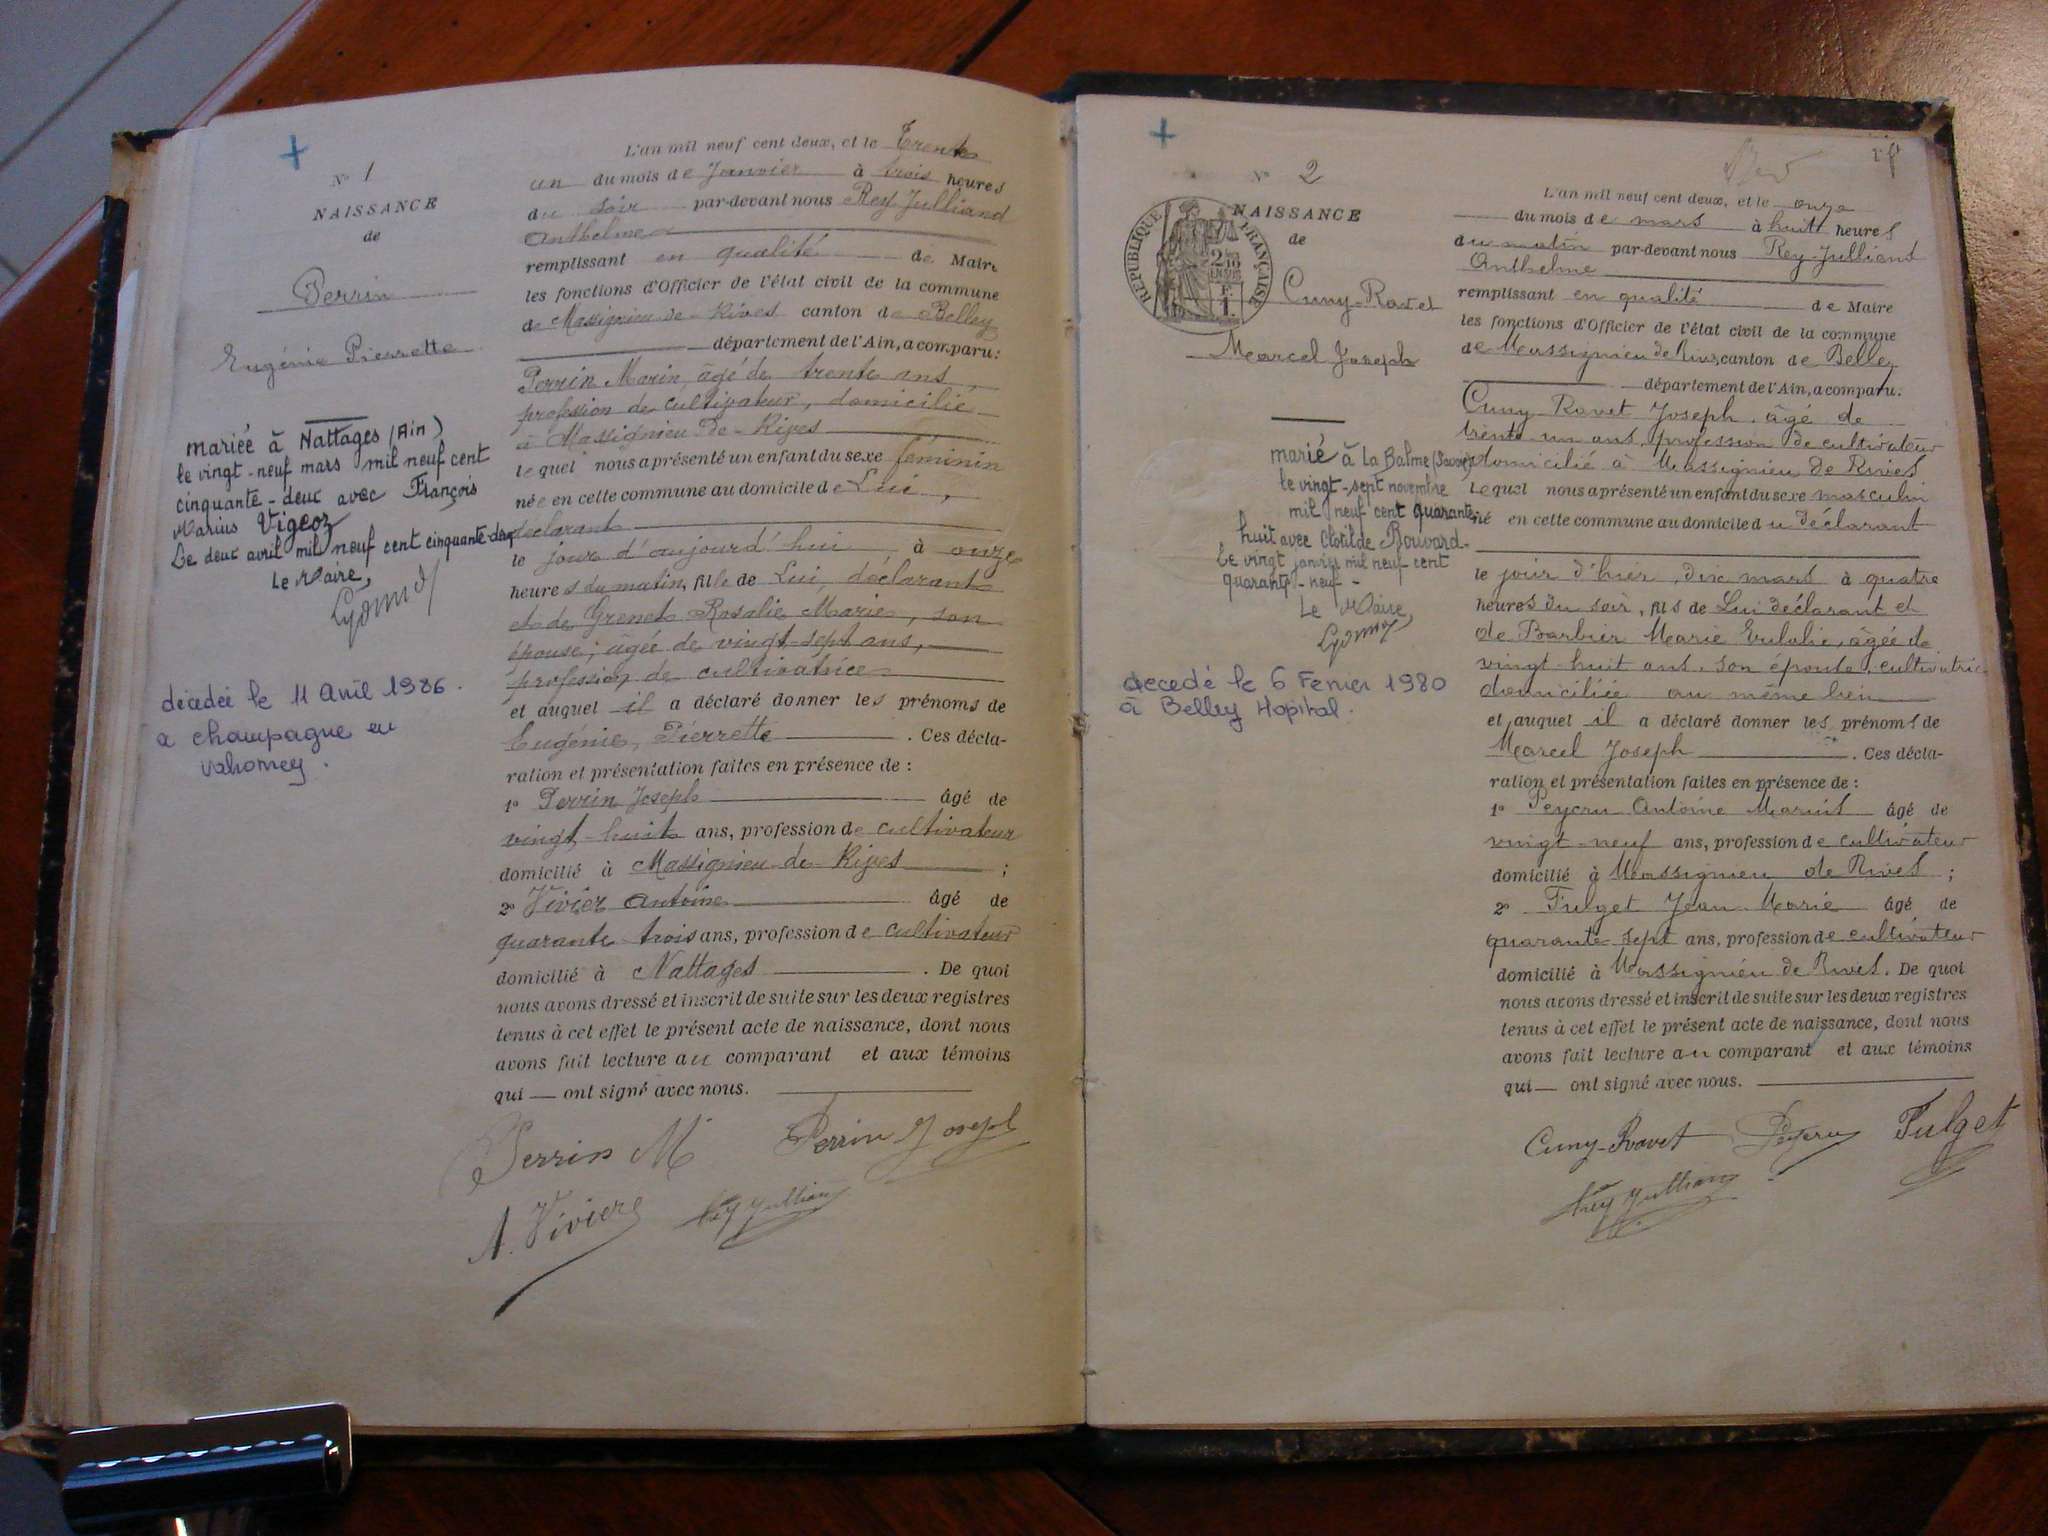 N° 1
NAISSANCE
de
Perrin
Eugénie Pierrette
mariée à Nattages (Ain)
le vingt-neuf mars mil neuf cent
cinquante-deux avec François
Marius Vigeoz
Le deux avril mil neuf cent cinquante-deux
Le Maire,
décédée le 11 Avril 1986.
a champagne en
valromey.
L'an mil neuf cent deux, et le Trente
un du mois de Janvier à trois heures
du soir par-devant nous Rey Julliand
Anthelme
remplissant en qualité de Maire
les fonctions d'Officier de l'état civil de la commune
de Massignieu-de-Rives canton de Belley
département de l'Ain, a comparu:
Perrin Marin, âgé de trente ans,
profession de cultivateur, domicilié
à Massignieu-De-Rives
lequel nous a présenté un enfant du sexe féminin
née en cette commune au domicile de Lui,
déclarant
le jour d'aujourd'hui, à onze
heures du matin, fille de Lui, déclarant
et de Grenet Rosalie Marie, son
épouse; âgée de vingt-sept ans,
profession de cultivatrice
et auquel il a déclaré donner les prénoms de
Eugénie, Pierrette. Ces décla-
ration et présentation faites en présence de :
1° Perrin Joseph âgé de
vingt-huit ans, profession de cultivateur
domicilié à Massignieu-de-Rives ;
2° Vivier Antoine âgé de
quarante trois ans, profession de cultivateur
domicilié à Nattages. De quoi
nous avons dressé et inscrit de suite sur les deux registres
tenus à cet effet le présent acte de naissance, dont nous
avons fait lecture au comparant et aux témoins
qui — ont signé avec nous.
Perrin M Perrin Joseph
A. Vivier Rey Julliand
N° 2
NAISSANCE
de
RÉPUBLIQUE FRANÇAISE
Cuny-Ravet
Marcel Joseph
marié à La Balme (Savoie)
le vingt-sept novembre
mil neuf cent quarante
huit avec Clotilde Bouvard-
Le vingt janvier mil neuf cent
quarante-neuf-
Le Maire,
decedé le 6 Fevrier 1980
à Belley Hopital.
L'an mil neuf cent deux, et le onze
du mois de mars à huit heures
du matin par-devant nous Rey-Julliand
Anthelme
remplissant en qualité de Maire
les fonctions d'Officier de l'état civil de la commune
de Massignieu de Rives, canton de Belley
département de l'Ain, a comparu:
Cuny-Ravet Joseph, âgé de
trente un ans, profession de cultivateur
domicilié à Massignieu de Rives
Lequel nous a présenté un enfant du sexe masculin
né en cette commune au domicile du déclarant
le jour d'hier, dix mars à quatre
heures du soir, fils de Lui déclarant et
de Barbier Marie Eulalie, âgée de
vingt-huit ans, son épouse, cultivatrice
domiciliée au même lieu
et auquel il a déclaré donner les prénoms de
Marcel Joseph. Ces décla-
ration et présentation faites en présence de :
1° Peycru Antoine Marius âgé de
vingt-neuf ans, profession de cultivateur
domicilié à Massignieu de Rives ;
2° Fulget Jean Marie âgé de
quarante sept ans, profession de cultivateur
domicilié à Massignieu de Rives. De quoi
nous avons dressé et inscrit de suite sur les deux registres
tenus à cet effet le présent acte de naissance, dont nous
avons fait lecture au comparant et aux témoins
qui — ont signé avec nous.
Cuny-Ravet Peycru Fulget
Rey Julliand